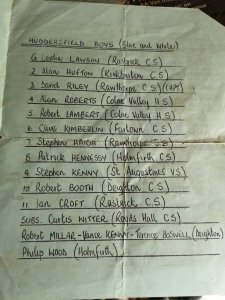 HUDDERSFIELD BOYS (Blue and White)
G Leslie LAWSON (Rastrick C.S)
2 Alan HUFTON (Kirkburton C.S)
3 David RILEY (Rawthorpe C.S) (CAPT)
4 Alan ROBERTS (Colne Valley H.S)
5 Robert LAMBERT (Colne Valley H.S)
6 Clive KIMBERLIN (Fartown C.S)
7 Stephen HAIGH (Rawthorpe C.S)
8 Patrick HENNESSY (Holmfirth C.S)
9 Stephen KENNY (St Augustines V.S)
10 Robert BOOTH (Deighton C.S)
11 Ian CROFT (Rastrick C.S)
SUBS. Curtis WITTER (Royds Hall C.S)
Robert MILLAR - Vance KENNY - Terence BOSWELL (Deighton)
Philip WOOD (Holmfirth)